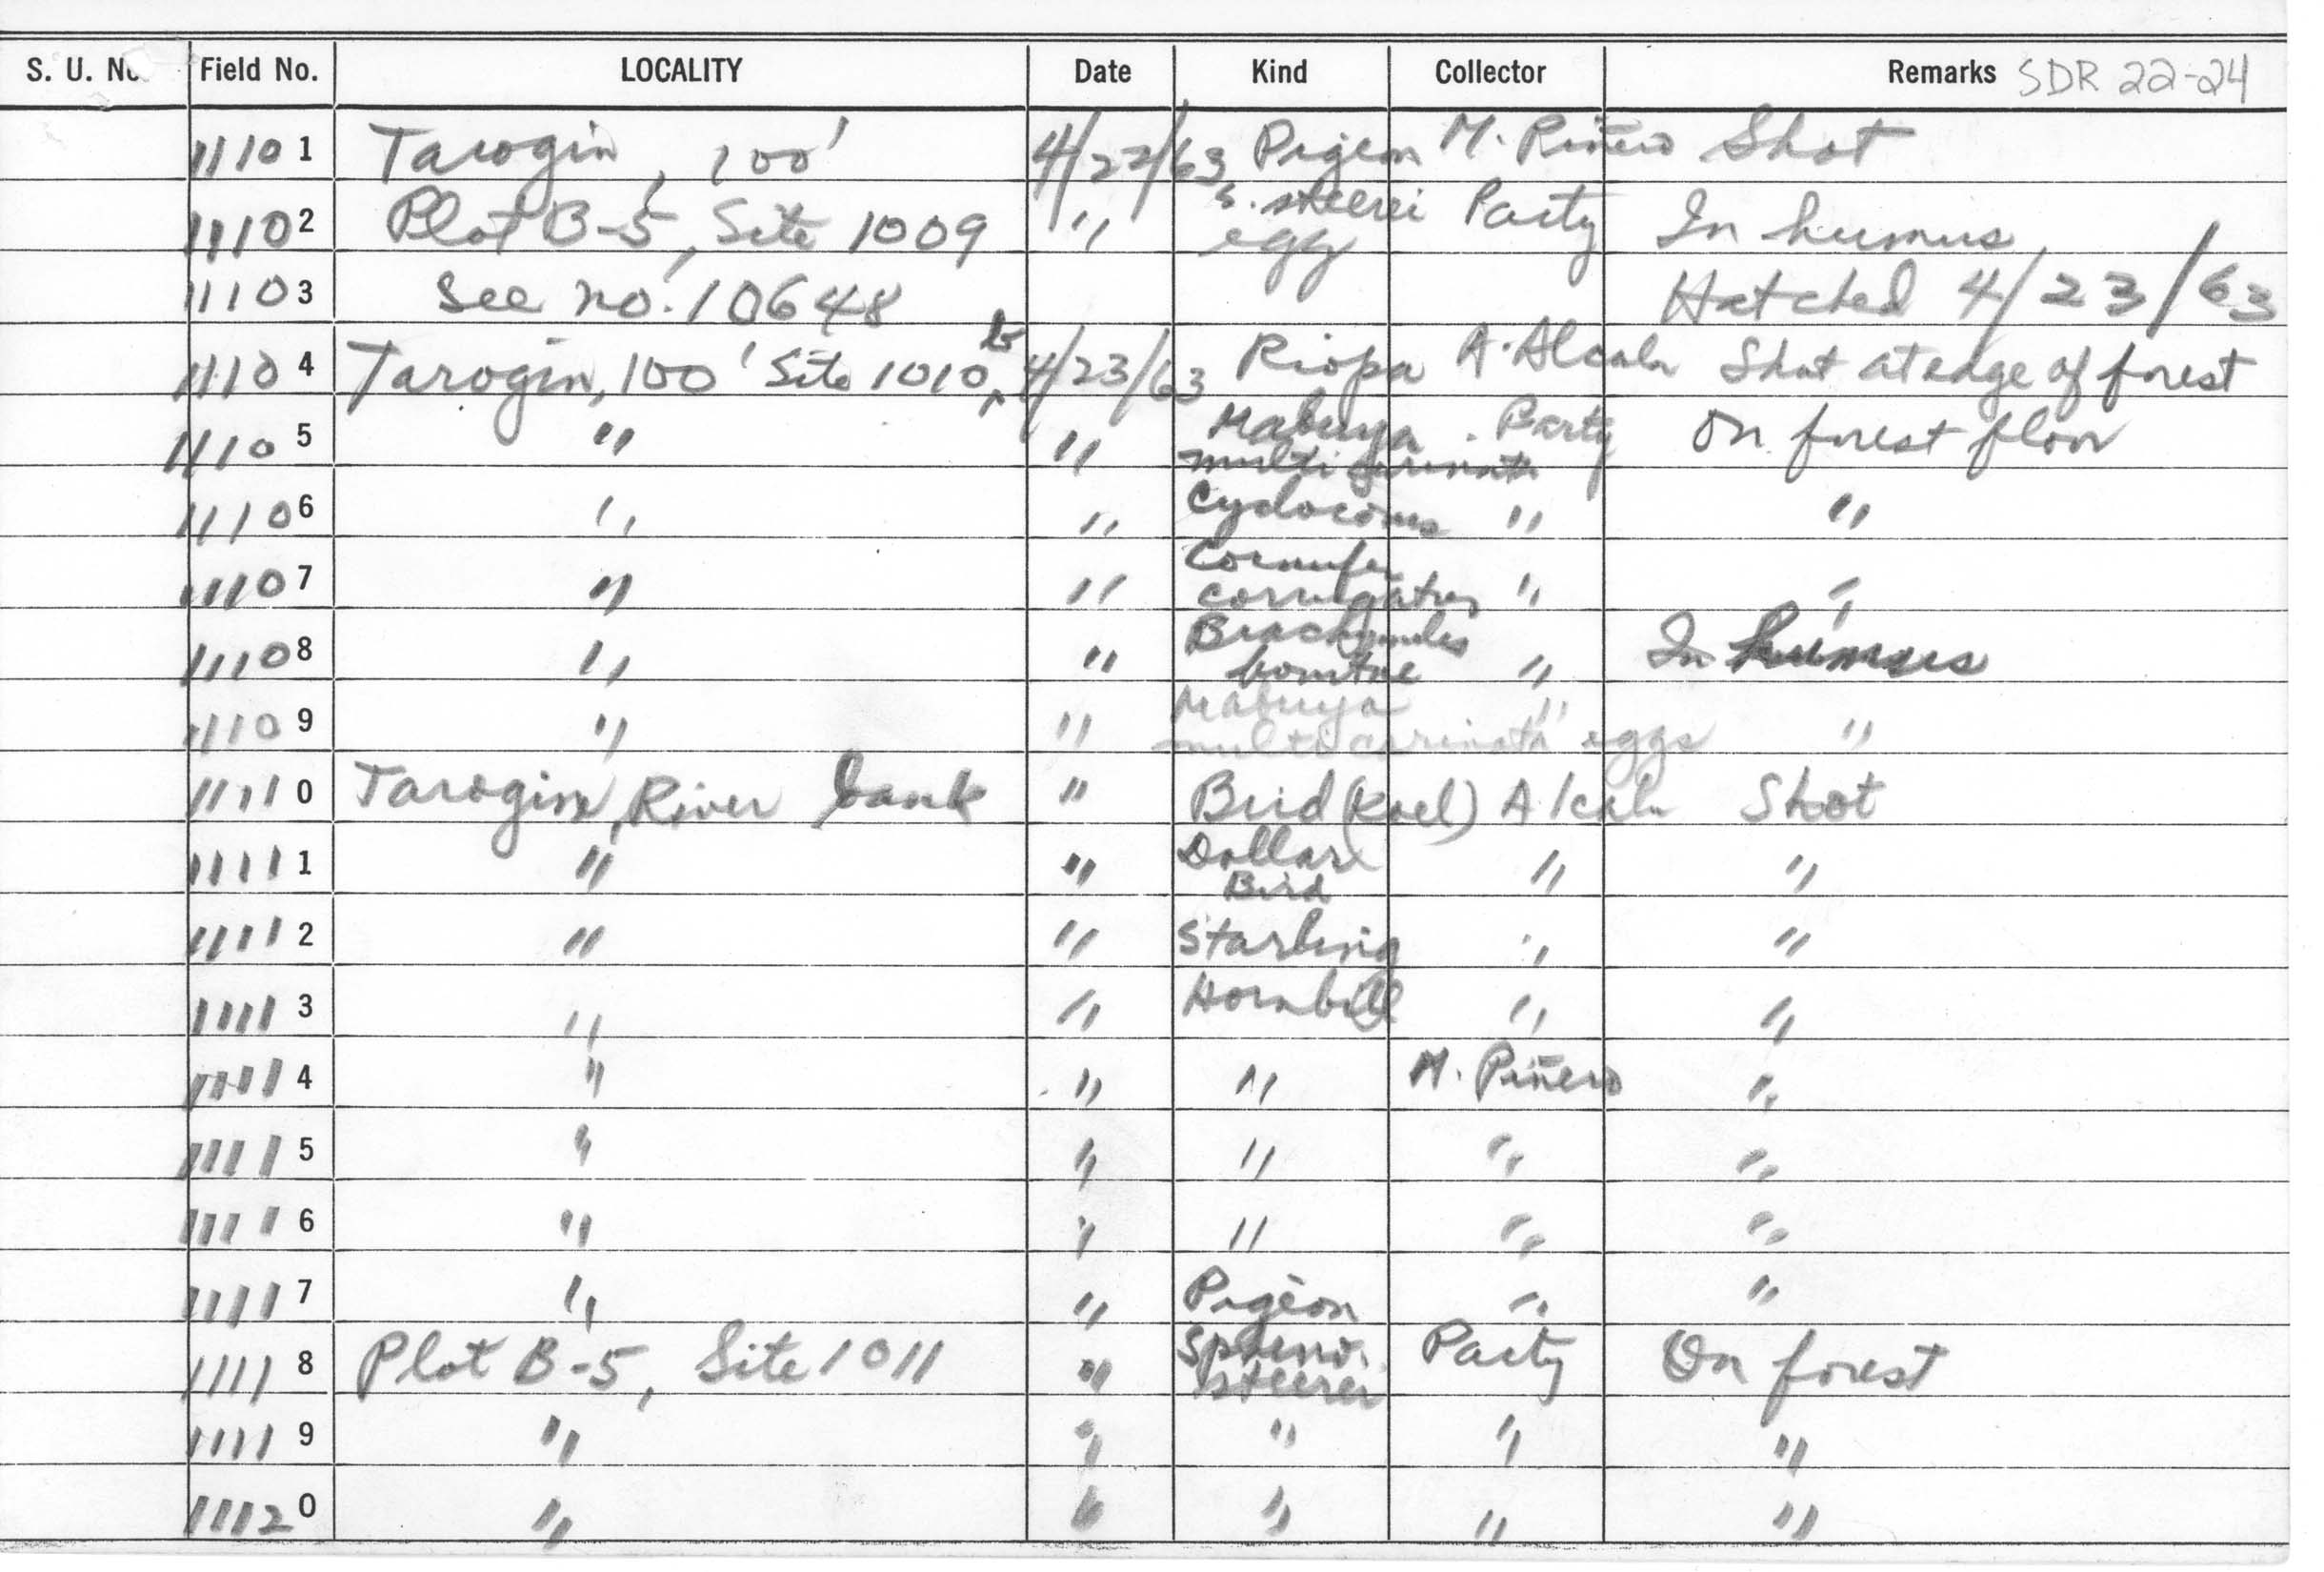 S. U. No Field No. LOCALITY Date Kind Collector Remarks SDR 22-24
11101 Tarogin, 100' 4/22/63 Pigeon M. Piñero Shot
11102 Plot B-5, Site 1009 " S. steerei egg Party In humus,
11103 See no. 10648 Hatched 4/23/63
11104 Tarogin, 100' Site 1010 4/23/63 Riopa A. Alcala Shot at edge of forest
11105 " " Mabuya multicarinata Party On forest floor
11106 " " " "
11107 " " Cornufer corrugatus " "
11108 " " " In humus
11109 " " Mabuya multicarinata eggs " "
11110 Tarogin, River bank " Bird (Koel) Alcala Shot
11111 " " Dollar Bird " "
11112 " " Starling " "
11113 " " Hornbill " "
11114 " " " M. Piñero "
11115 " " " " "
11116 " " " " "
11117 " " Pigeon " "
11118 Plot B-5, Site 1011 " Spheno. steerei Party On forest
11119 " " " " "
11120 " " " " "